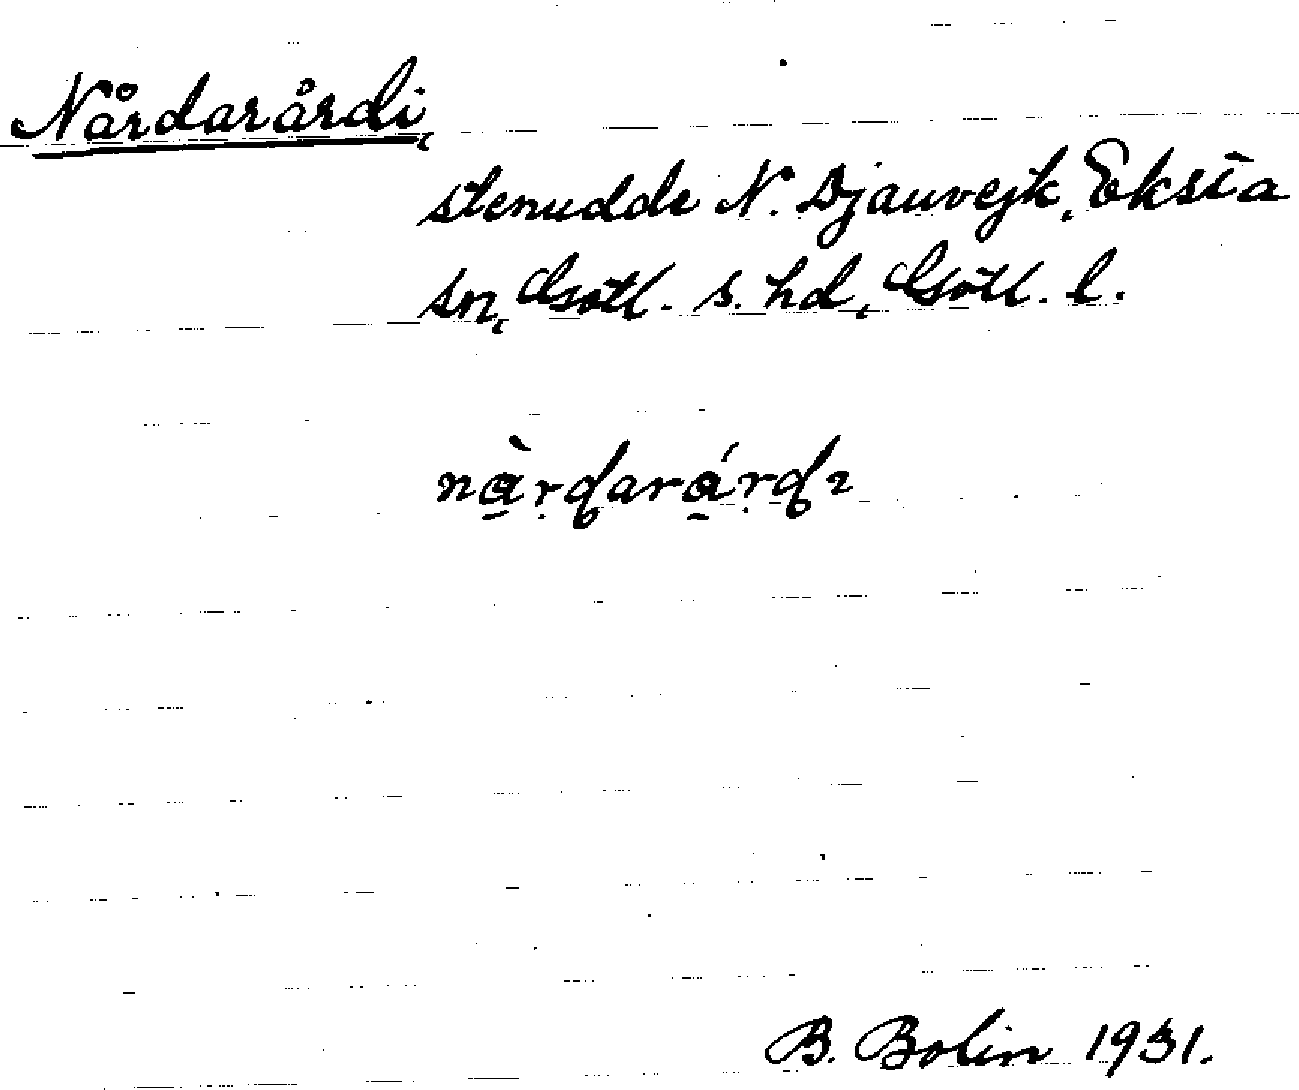 Nårdarårdi,
stenudde N. Djauvejk, Eksta
sn, Gotl. s. hd, Gotl. l.
nàrdarárdı
B. Bolin 1931.